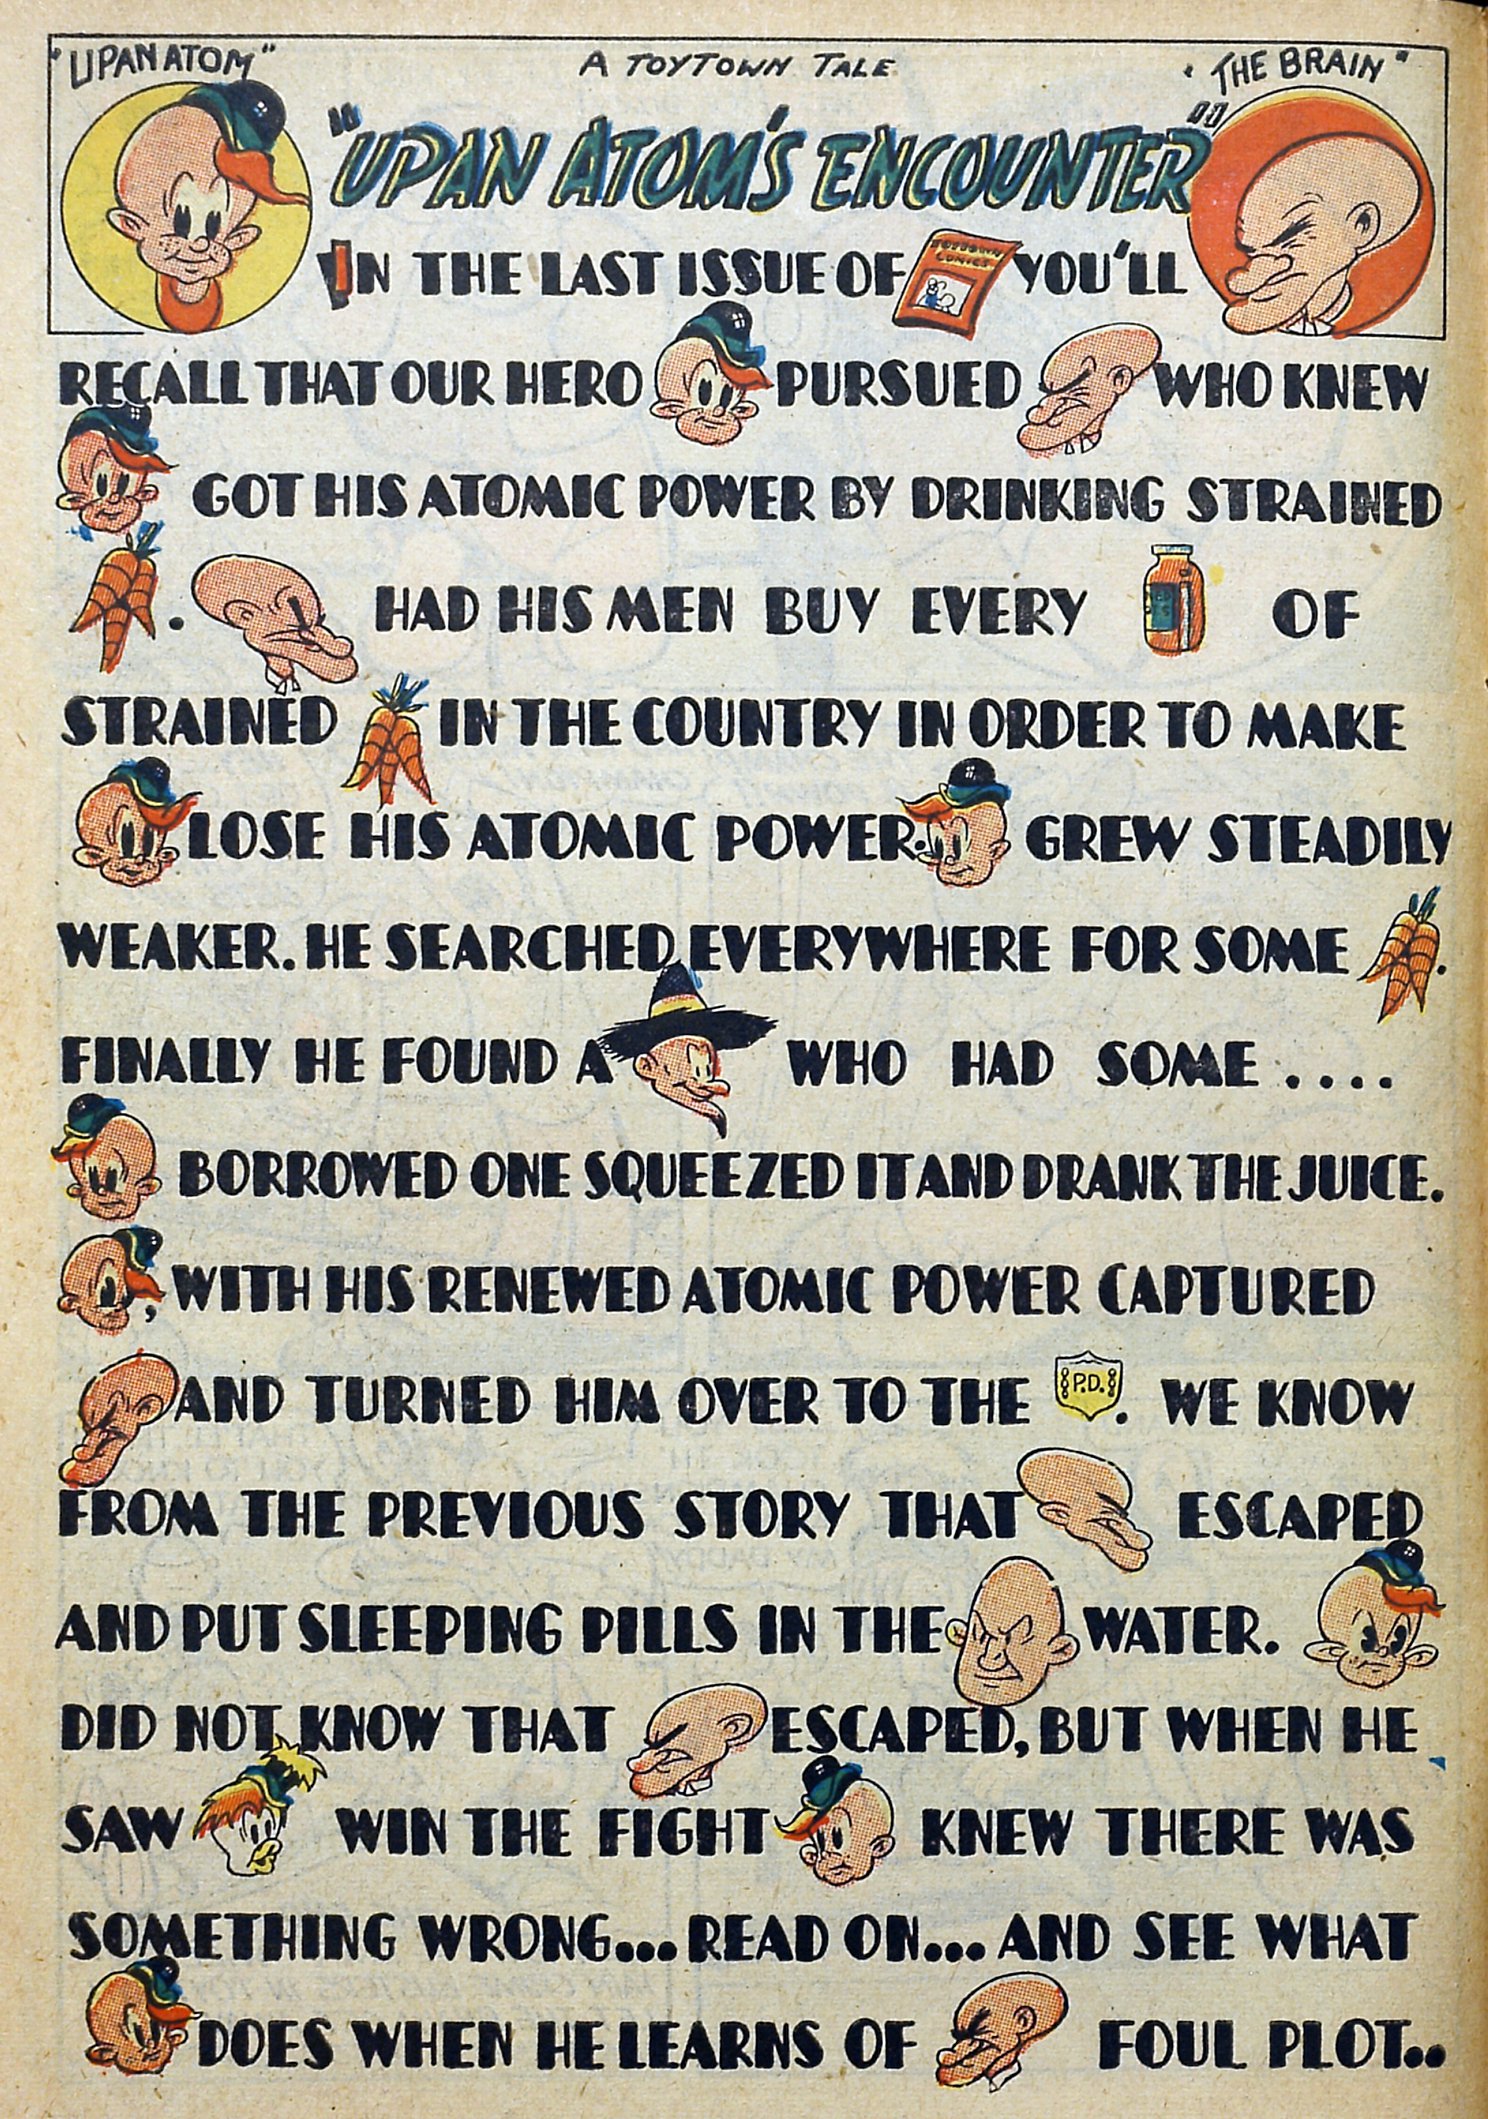 "UPAN ATOM"
A TOYTOWN TALE
"THE BRAIN"
"UPAN ATOM'S ENCOUNTER"
IN THE LAST ISSUE OF TOYTOWN COMICS YOU'LL
RECALL THAT OUR HERO PURSUED WHO KNEW
GOT HIS ATOMIC POWER BY DRINKING STRAINED
. HAD HIS MEN BUY EVERY OF
STRAINED IN THE COUNTRY IN ORDER TO MAKE
LOSE HIS ATOMIC POWER. GREW STEADILY
WEAKER. HE SEARCHED EVERYWHERE FOR SOME .
FINALLY HE FOUND A WHO HAD SOME ....
BORROWED ONE SQUEEZED IT AND DRANK THE JUICE.
, WITH HIS RENEWED ATOMIC POWER CAPTURED
AND TURNED HIM OVER TO THE P.D. . WE KNOW
FROM THE PREVIOUS STORY THAT ESCAPED
AND PUT SLEEPING PILLS IN THE WATER.
DID NOT KNOW THAT ESCAPED, BUT WHEN HE
SAW WIN THE FIGHT KNEW THERE WAS
SOMETHING WRONG... READ ON... AND SEE WHAT
DOES WHEN HE LEARNS OF FOUL PLOT..